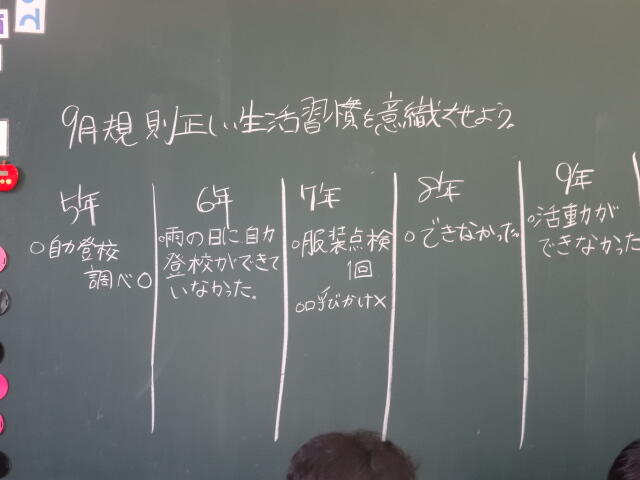 9月規則正しい生活習慣を意識させよう。
5年
○自力登校
調べ○
6年
○雨の日に自力
登校ができて
いなかった。
7年
○服装点検
1回
○口呼びかけ×
8年
○できなかった。
9年
○活動が
できなかった